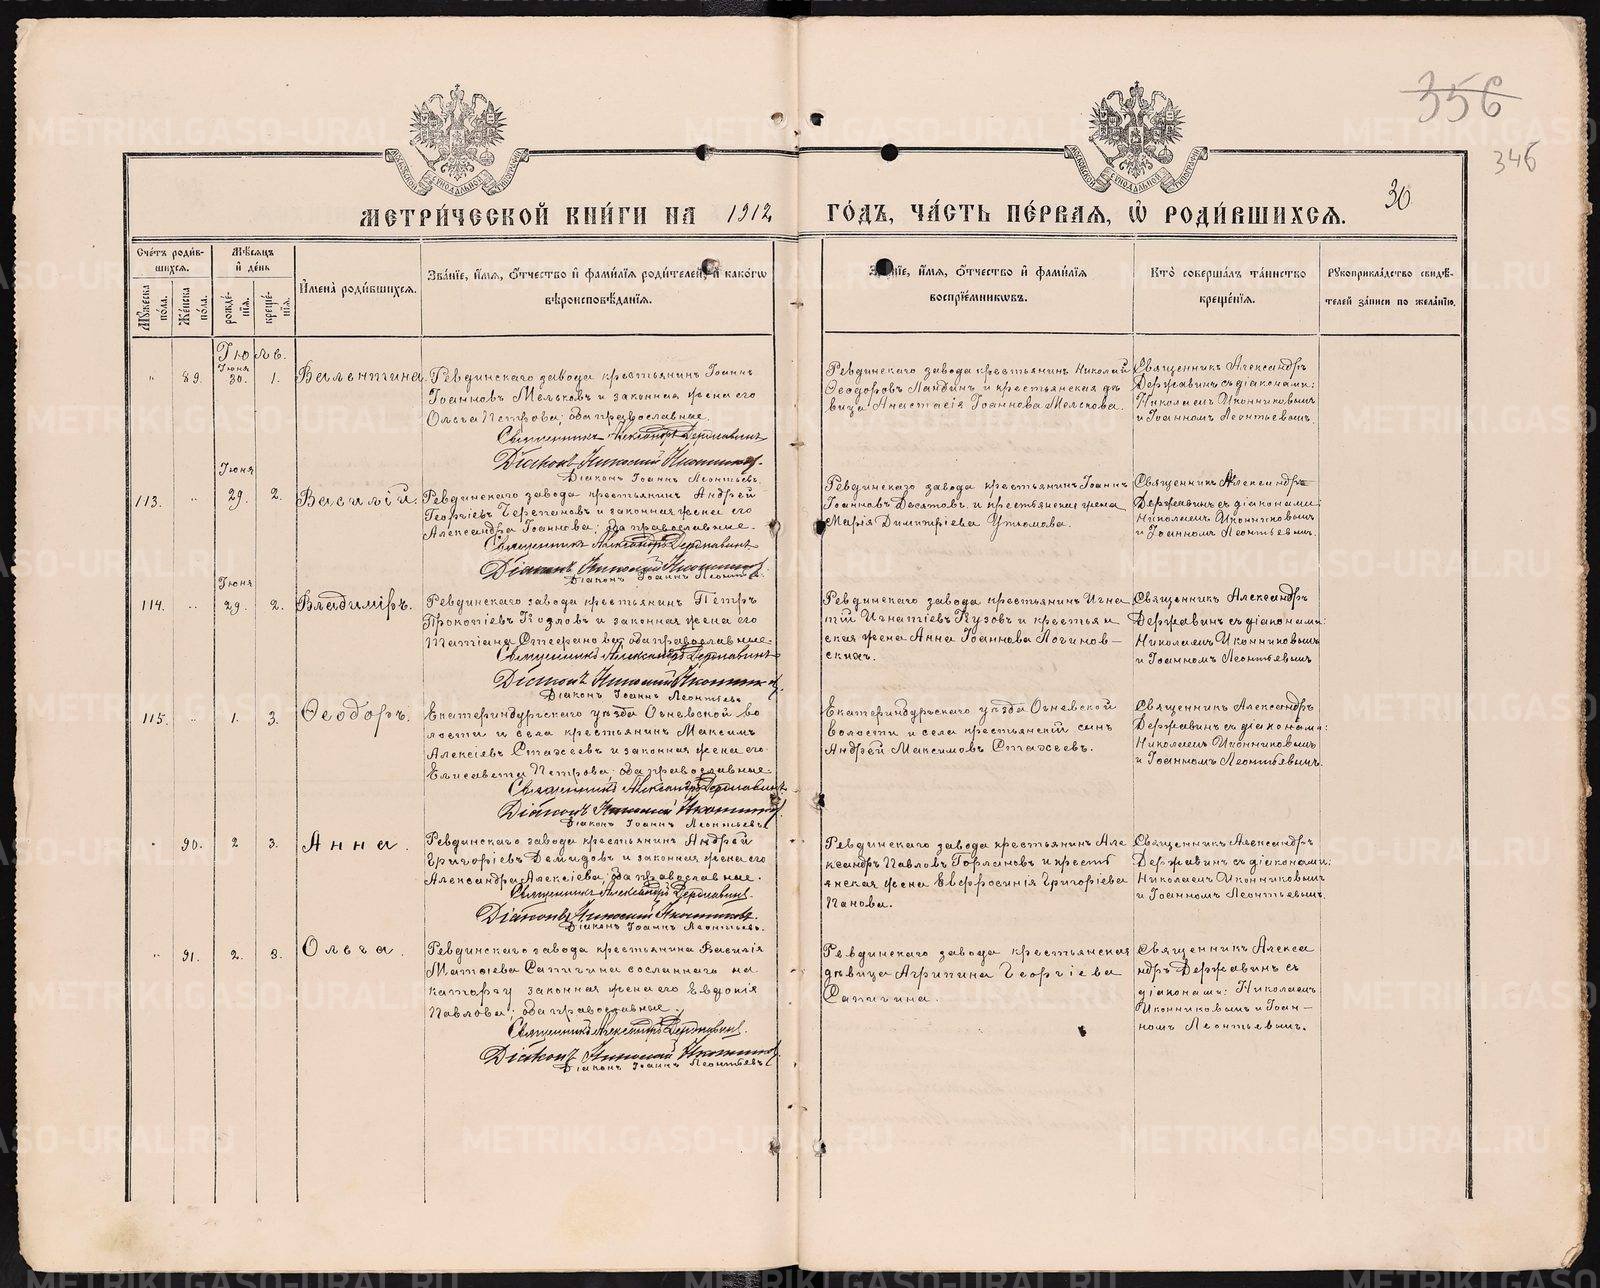 356
346
30
МЕТРИ́ЧЕСКОЙ КНИ́ГИ НА 1912 ГО́ДЪ, ЧА́СТЬ ПЕ́РВАЯ, Ѡ҆ РОДИ́ВШИХСЯ.
Сче́тъ роди́вшихся.
Мѣ́сяцъ и҆ де́нь
Му́жеска по́ла.
Же́нска по́ла.
рожде́нїя.
креще́нїя.
И҆мена̀ роди́вшихся.
Зва́нїе, и҆́мя, ѻ҆́тчество и҆ фами́лїя роди́телей, и҆ како́гѡ
вѣроисповѣ́данїя.
Зва́нїе, и҆́мя, ѻ҆́тчество и҆ фами́лїя
воспрїе́мникѡвъ.
Кто̀ соверша́лъ та́инство
креще́нїя.
Рꙋкоприкла́дство свидѣ́-
телей за́писи по жела́нїю.
Іюль.
" 89. Іюня 30. 1. Валентина.
Ревдинскаго завода крестьянинъ Іоаннъ
Іоанновъ Мельковъ и законная жена его
Ольга Петрова; оба православные.
Священникъ Александръ Державинъ
Діаконъ Николай Иконниковъ.
Діаконъ Іоаннъ Леонтьевъ.
Ревдинскаго завода крестьянинъ Николай
Ѳеодоровъ и крестьянская дѣ
вица Анастасія Іоаннова Мелкова.
Священникъ Александръ
Державинъ съ діаконами:
Николаемъ Иконниковымъ
и Іоанномъ Леонтьевымъ.
113. " Іюня 29. 2. Василій.
Ревдинскаго завода крестьянинъ Андрей
Георгіевъ Черепановъ и законная жена его
Александра Іоаннова; оба православные.
Священникъ Александръ Державинъ
Діаконъ Николай Иконниковъ
Діаконъ Іоаннъ Леонтьевъ.
Ревдинскаго завода крестьянинъ Іоаннъ
Іоанновъ Десятовъ и крестьянская жена
Марія Димитріева Утюмова.
Священникъ Александръ
Державинъ съ діаконами:
Николаемъ Иконниковымъ
и Іоанномъ Леонтьевымъ.
114. " Іюня 29. 2. Владиміръ.
Ревдинскаго завода крестьянинъ Петръ
Прокопіевъ Козловъ и законная жена его
Татіана Стефанова; оба православные.
Священникъ Александръ Державинъ
Діаконъ Николай Иконников.
Діаконъ Іоаннъ Леонтьевъ
Ревдинскаго завода крестьянинъ Игна
тій Игнатіевъ Кузовъ и крестьян
ская жена Анна Іоаннова Логинов-
скихъ.
Священникъ Александръ
Державинъ съ діаконами:
Николаемъ Иконниковымъ
и Іоанномъ Леонтьевымъ
115. " 1. 3. Ѳеодоръ.
Екатеринбургскаго уѣзда Огневской во
лости и села крестьянинъ Максимъ
Алексіевъ Стахеевъ и законная жена его
Елисавета Петрова; оба православные.
Священникъ Александръ Державинъ
Діаконъ Николай Иконников.
Діаконъ Іоаннъ Леонтьевъ
Екатеринбургскаго уѣзда Огневской
волости и села крестьянскій сынъ
Андрей Максимовъ Стахеевъ.
Священникъ Александръ
Державинъ съ діаконами:
Николаемъ Иконниковымъ
и Іоанномъ Леонтьевымъ.
" 90. 2 3. Анна.
Ревдинскаго завода крестьянинъ Андрей
Григоріевъ Демидовъ и законная жена его
Александра Алексіева; оба православные.
Священникъ Александръ Державинъ.
Діаконъ Николай Иконниковъ.
Діаконъ Іоаннъ Леонтьевъ.
Ревдинскаго завода крестьянинъ Але
ксандръ Павловъ Горлановъ и кресть
янская жена Евфросинія Григоріева
Панова.
Священникъ Александръ
Державинъ съ діаконами:
Николаемъ Иконниковымъ
и Іоанномъ Леонтьевымъ.
" 91. 2. 3. Ольга.
Ревдинскаго завода крестьянина Василія
Матѳіева Сапигина сосланнаго на
каторгу законная жена его Евдокія
Павлова; оба православные.
Священникъ Александръ Державинъ.
Діаконъ Николай Иконников.
Діаконъ Іоаннъ Леонтьевъ
Ревдинскаго завода крестьянская
дѣвица Агрипина Георгіева
Сапигина.
Священникъ Алекса
ндръ Державинъ съ
діаконами: Николаемъ
Иконниковымъ и Іоан-
номъ Леонтьевымъ.
METRIKI.GASO-URAL.RU